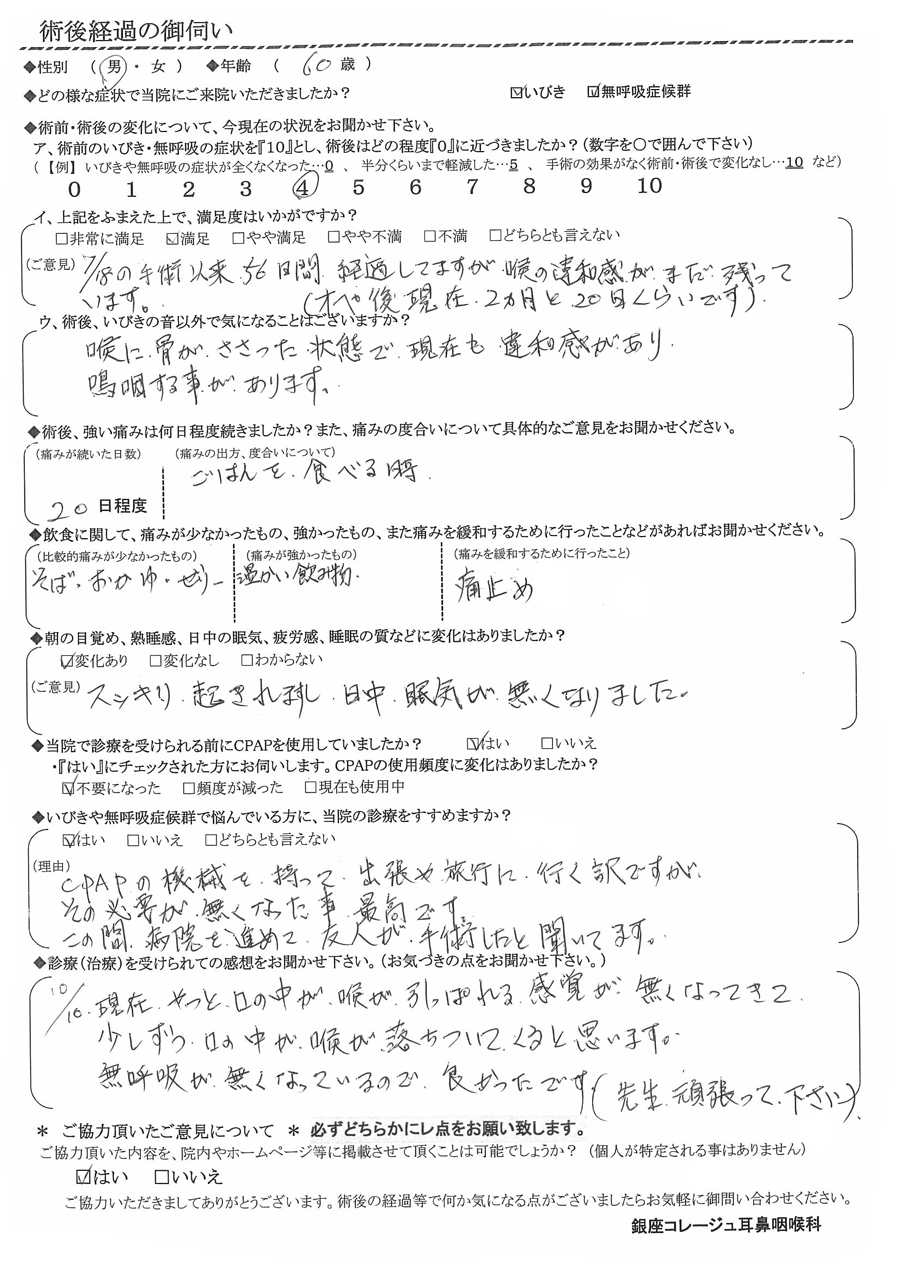 術後経過の御伺い
◆性別 (男・女) ◆年齢 ( 60 歳)
◆どの様な症状で当院にご来院いただきましたか? ☑いびき ☑無呼吸症候群
◆術前・術後の変化について、今現在の状況をお聞かせ下さい。
ア、術前のいびき・無呼吸の症状を『10』とし、術後はどの程度『0』に近づきましたか?(数字を○で囲んで下さい)
(【例】いびきや無呼吸の症状が全くなくなった…0 、 半分くらいまで軽減した…5 、 手術の効果がなく術前・術後で変化なし…10 など)
0 1 2 3 ④ 5 6 7 8 9 10
イ、上記をふまえた上で、満足度はいかがですか?
□非常に満足 ☑満足 □やや満足 □やや不満 □不満 □どちらとも言えない
(ご意見) 7/18の手術以来、56日間、経過してますが、喉の違和感が、まだ、残って
います。 (オペ後、現在、2カ月と20日くらいです)
ウ、術後、いびきの音以外で気になることはございますか?
喉に、骨が、ささった、状態で、現在も、違和感があり、
嗚咽する事が、あります。
◆術後、強い痛みは何日程度続きましたか?また、痛みの度合いについて具体的なご意見をお聞かせください。
(痛みが続いた日数) (痛みの出方、度合いについて)
ごはんを、食べる時。
20 日程度
◆飲食に関して、痛みが少なかったもの、強かったもの、また痛みを緩和するために行ったことなどがあればお聞かせください。
(比較的痛みが少なかったもの) (痛みが強かったもの) (痛みを緩和するために行ったこと)
そば、おかゆ、ゼリー 温かい飲み物、 痛止め
◆朝の目覚め、熟睡感、日中の眠気、疲労感、睡眠の質などに変化はありましたか?
☑変化あり □変化なし □わからない
(ご意見) スッキリ、起きれますし、日中、眠気が、無くなりました。
◆当院で診療を受けられる前にCPAPを使用していましたか? ☑はい □いいえ
・『はい』にチェックされた方にお伺いします。CPAPの使用頻度に変化はありましたか?
☑不要になった □頻度が減った □現在も使用中
◆いびきや無呼吸症候群で悩んでいる方に、当院の診療をすすめますか?
☑はい □いいえ □どちらとも言えない
(理由) CPAPの機械を、持って、出張や旅行に、行く訳ですが、
その必要が、無くなった事、最高です。
この間、病院を進めて、友人が、手術したと聞いてます。
◆診療(治療)を受けられての感想をお聞かせ下さい。(お気づきの点をお聞かせ下さい。)
10/10、現在、やっと、口の中が、喉が、引っぱれる、感覚が、無くなってきて、
少しずつ、口の中が、喉が、落ちついて、くると思います。
無呼吸が、無くなっているので、良かったです。(先生、頑張って、下さい)。
* ご協力頂いたご意見について * 必ずどちらかにレ点をお願い致します。
ご協力頂いた内容を、院内やホームページ等に掲載させて頂くことは可能でしょうか? (個人が特定される事はありません)
☑はい □いいえ
ご協力いただきましてありがとうございます。術後の経過等で何か気になる点がございましたらお気軽に御問い合わせください。
銀座コレージュ耳鼻咽喉科